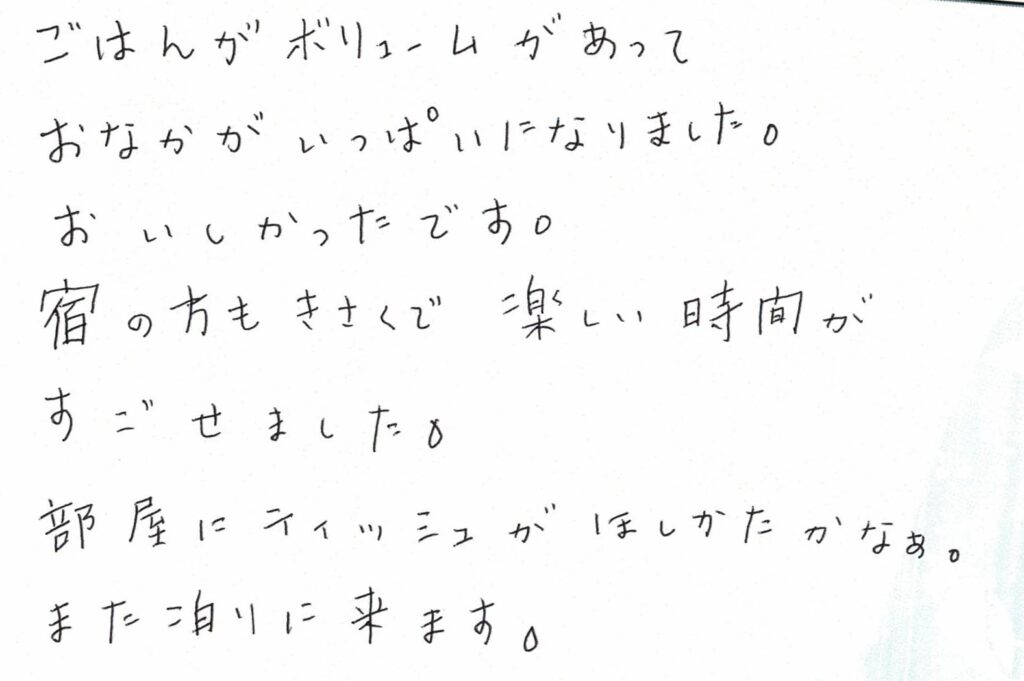 ごはんがボリュームがあって
おなかがいっぱいになりました。
おいしかったです。
宿の方もきさくで 楽しい時間が
すごせました。
部屋にティッシュがほしかたかなぁ。
また泊りに来ます。